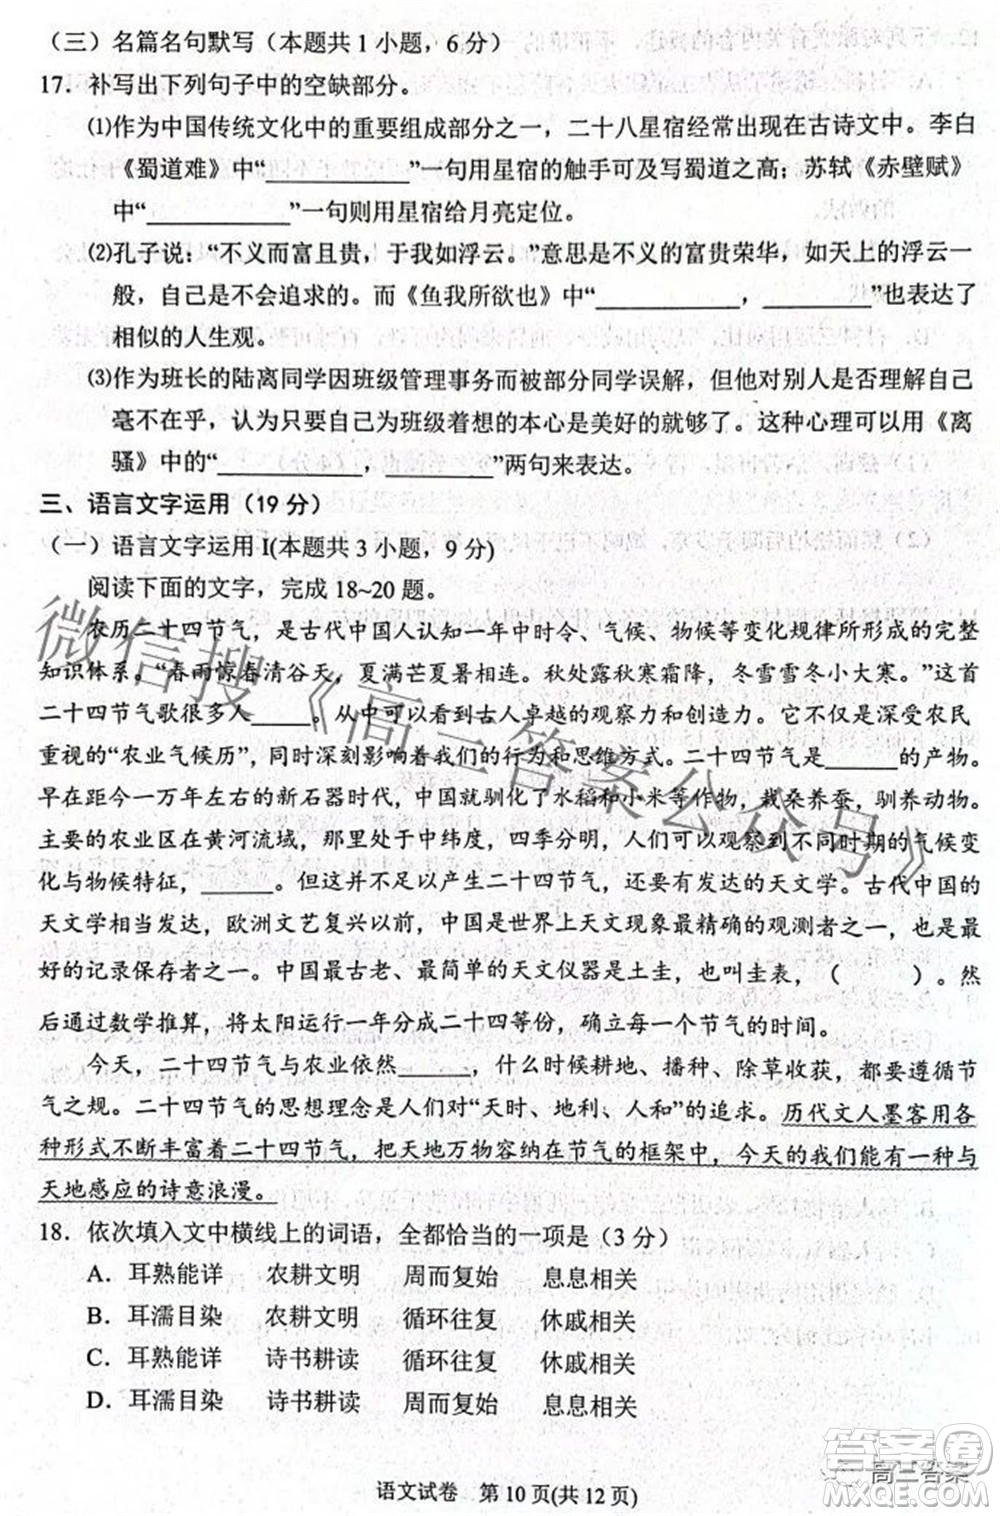 （三）名篇名句默写（本题共1小题，6分）
17．补写出下列句子中的空缺部分。
⑴作为中国传统文化中的重要组成部分之一，二十八星宿经常出现在古诗文中。李白
《蜀道难》中“____________”一句用星宿的触手可及写蜀道之高；苏轼《赤壁赋》
中“____________”一句则用星宿给月亮定位。
⑵孔子说：“不义而富且贵，于我如浮云。”意思是不义的富贵荣华，如天上的浮云一
般，自己是不会追求的。而《鱼我所欲也》中“____________，_________”也表达了
相似的人生观。
⑶作为班长的陆离同学因班级管理事务而被部分同学误解，但他对别人是否理解自己
毫不在乎，认为只要自己为班级着想的本心是美好的就够了。这种心理可以用《离
骚》中的“____________，_________”两句来表达。
三、语言文字运用（19分）
（一）语言文字运用Ⅰ(本题共3小题，9分)
阅读下面的文字，完成18~20题。
农历二十四节气，是古代中国人认知一年中时令、气候、物候等变化规律所形成的完整
知识体系。“春雨惊春清谷天，夏满芒夏暑相连。秋处露秋寒霜降，冬雪雪冬小大寒。”这首
二十四节气歌很多人_____。从中可以看到古人卓越的观察力和创造力。它不仅是深受农民
重视的“农业气候历”，同时深刻影响着我们的行为和思维方式。二十四节气是______的产物。
早在距今一万年左右的新石器时代，中国就驯化了水稻和小米等作物，栽桑养蚕，驯养动物。
主要的农业区在黄河流域，那里处于中纬度，四季分明，人们可以观察到不同时期的气候变
化与物候特征，______。但仅有这些不足以产生二十四节气，还要有发达的天文学。古代中国的
天文学相当发达，欧洲文艺复兴以前，中国是世界上天文现象最精确的观测者之一，也是最
好的记录保存者之一。中国最古老、最简单的天文仪器是土圭，也叫圭表，（　　）。然
后通过数学推算，将太阳运行一年分成二十四等份，确立每一个节气的时间。
今天，二十四节气与农业依然______，什么时候耕地、播种、除草收获，都要遵循节
气之规。二十四节气的思想理念是人们对“天时、地利、人和”的追求。历代文人墨客用各
种形式不断丰富着二十四节气，把天地万物容纳在节气的框架中，今天的我们能有一种与
天地感应的诗意浪漫。
18．依次填入文中横线上的词语，全都恰当的一项是（3分）
A．耳熟能详　农耕文明　周而复始　息息相关
B．耳濡目染　农耕文明　循环往复　休戚相关
C．耳熟能详　诗书耕读　循环往复　休戚相关
D．耳濡目染　诗书耕读　周而复始　息息相关
语文试卷　第10页(共12页)
微信搜《高三答案公众号》
答案圈
高三答案
MXQE.COM